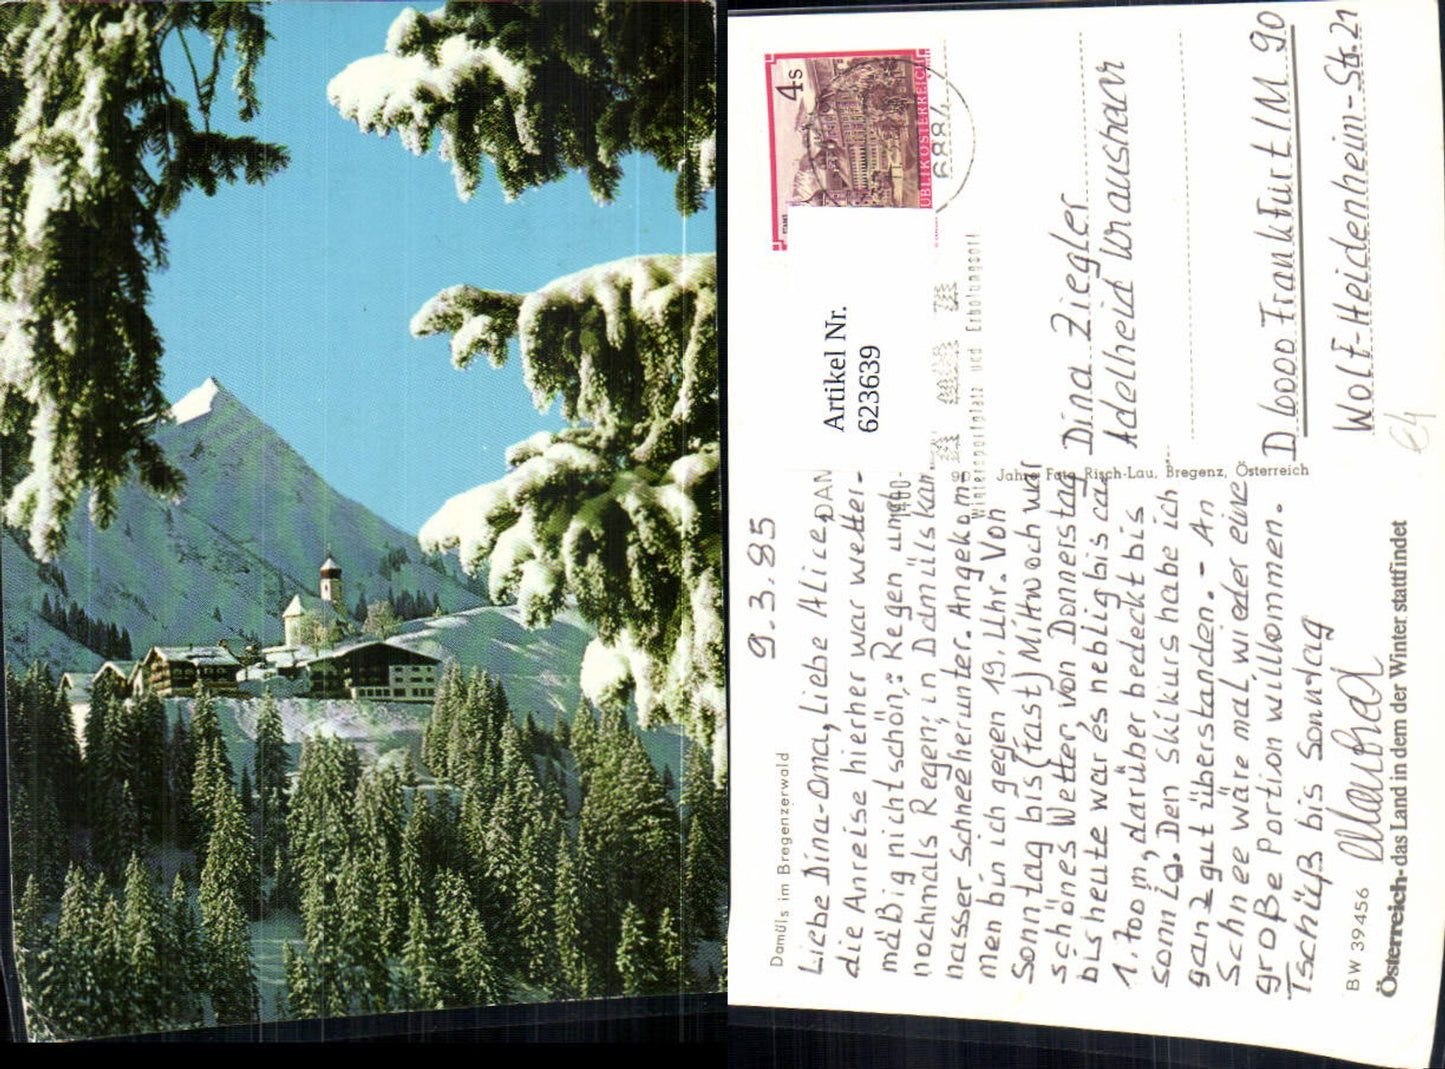 Damüls im Bregenzerwald
9.3.85
Liebe Dina-Oma, Liebe Alice,
die Anreise hierher war wetter-
mäßig nicht schön: Regen und
nochmals Regen; in Damüls kam
nasser Schnee herunter. Angekom-
men bin ich gegen 19. Uhr. Von
Sonntag bis (fast) Mittwoch war
schönes Wetter, von Donnerstag
bis heute war es neblig bis ca.
1.700 m, darüber bedeckt bis
sonnig. Den Skikurs habe ich
ganz gut überstanden. - An
Schnee wäre mal wieder eine
große Portion willkommen.
Tschüß bis Sonntag
BW 39456
Österreich - das Land in dem der Winter stattfindet
90 Jahre Foto Risch-Lau, Bregenz, Österreich
4 s
UBLIK ÖSTERREICH
6884
Artikel Nr.
623639
Wintersportplatz und Erholungsort
Dina Ziegler
Adelheid Kraushaar
D 6000 Frankfurt/M 90
Wolf-Heidenheim-Str. 21